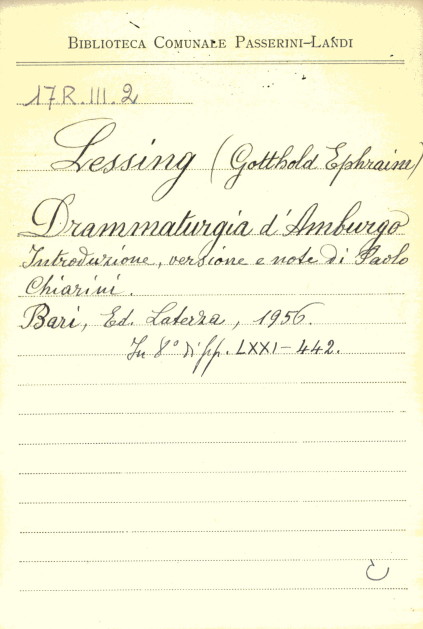 BIBLIOTECA COMUNALE PASSERINI-LANDI
17 R. III. 2
Lessing (Gotthold Ephraim)
Drammaturgia d'Amburgo
Introduzione, versione e note di Paolo
Chiarini.
Bari, Ed. Laterza, 1956.
In 8° di pp. LXXI-442.